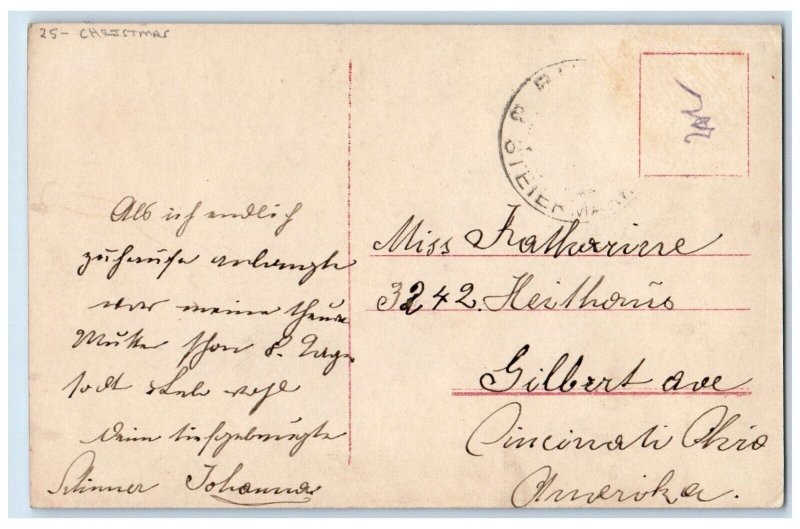 25- CHRISTMAS
STEIERMARK
Als ich endlich
zuhause anlangte
war meine theure
Mutter schon 8. Tage
todt Lebe wohl
Deine tiefgebeugte
Johanna
Miss Katharine
3242. Heithaus
Gilbert ave
Cincinati Ohio
Amerika.